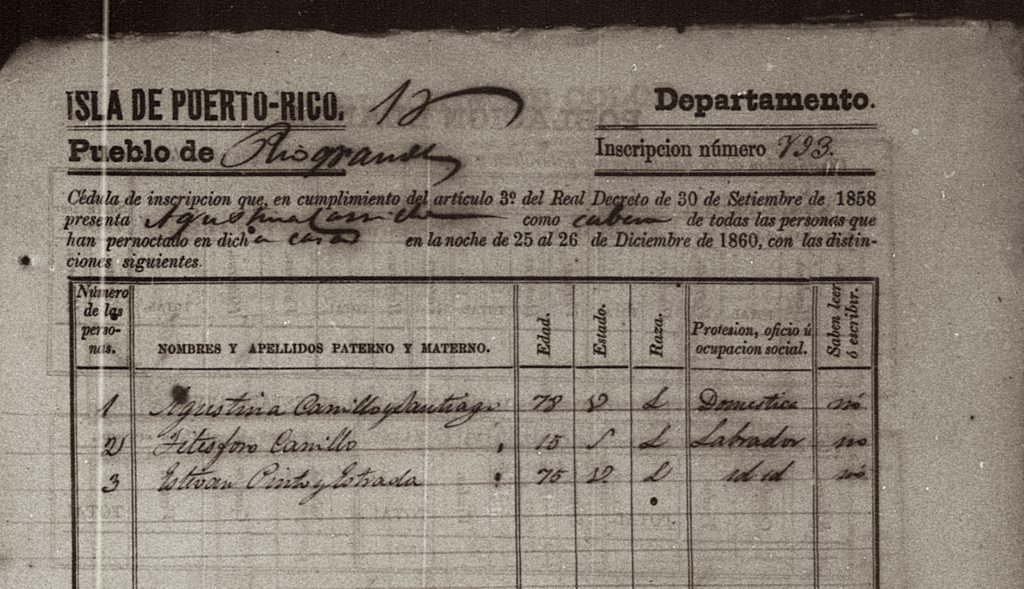 ISLA DE PUERTO-RICO. Departamento.
Pueblo de Riogrande Inscripcion número 793.
Cédula de inscripcion que, en cumplimiento del artículo 3º del Real Decreto de 30 de Setiembre de 1858
presenta Agustina como cabeza de todas las personas que
han pernoctado en dicha casa en la noche de 25 al 26 de Diciembre de 1860, con las distin-
ciones siguientes.
Número de las perso- nas. NOMBRES Y APELLIDOS PATERNO Y MATERNO. Edad. Estado. Raza. Profesion, oficio ú ocupacion social. Saben leer ó escribir.
1 Agustina Carrillo y Santiago 78 V L Domestica no
2 Telesforo Carrillo 15 S L Labrador no
3 Estevan Pinto y Estrada 75 V. L id id no